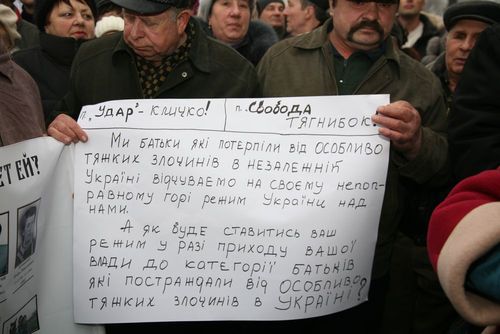 п. „Удар"- Кличко!
п. Свобода
Тягнибок!
Ми батьки які потерпіли від особливо
тяжких злочинів в незалежній
Україні відчуваємо на своєму непоп-
равному горі режим України над
нами.
А як буде ставитись ваш
режим у разі приходу вашої
влади до категорії батьків
які постраждали від особливо
тяжких злочинів в Україні?
ет ей?